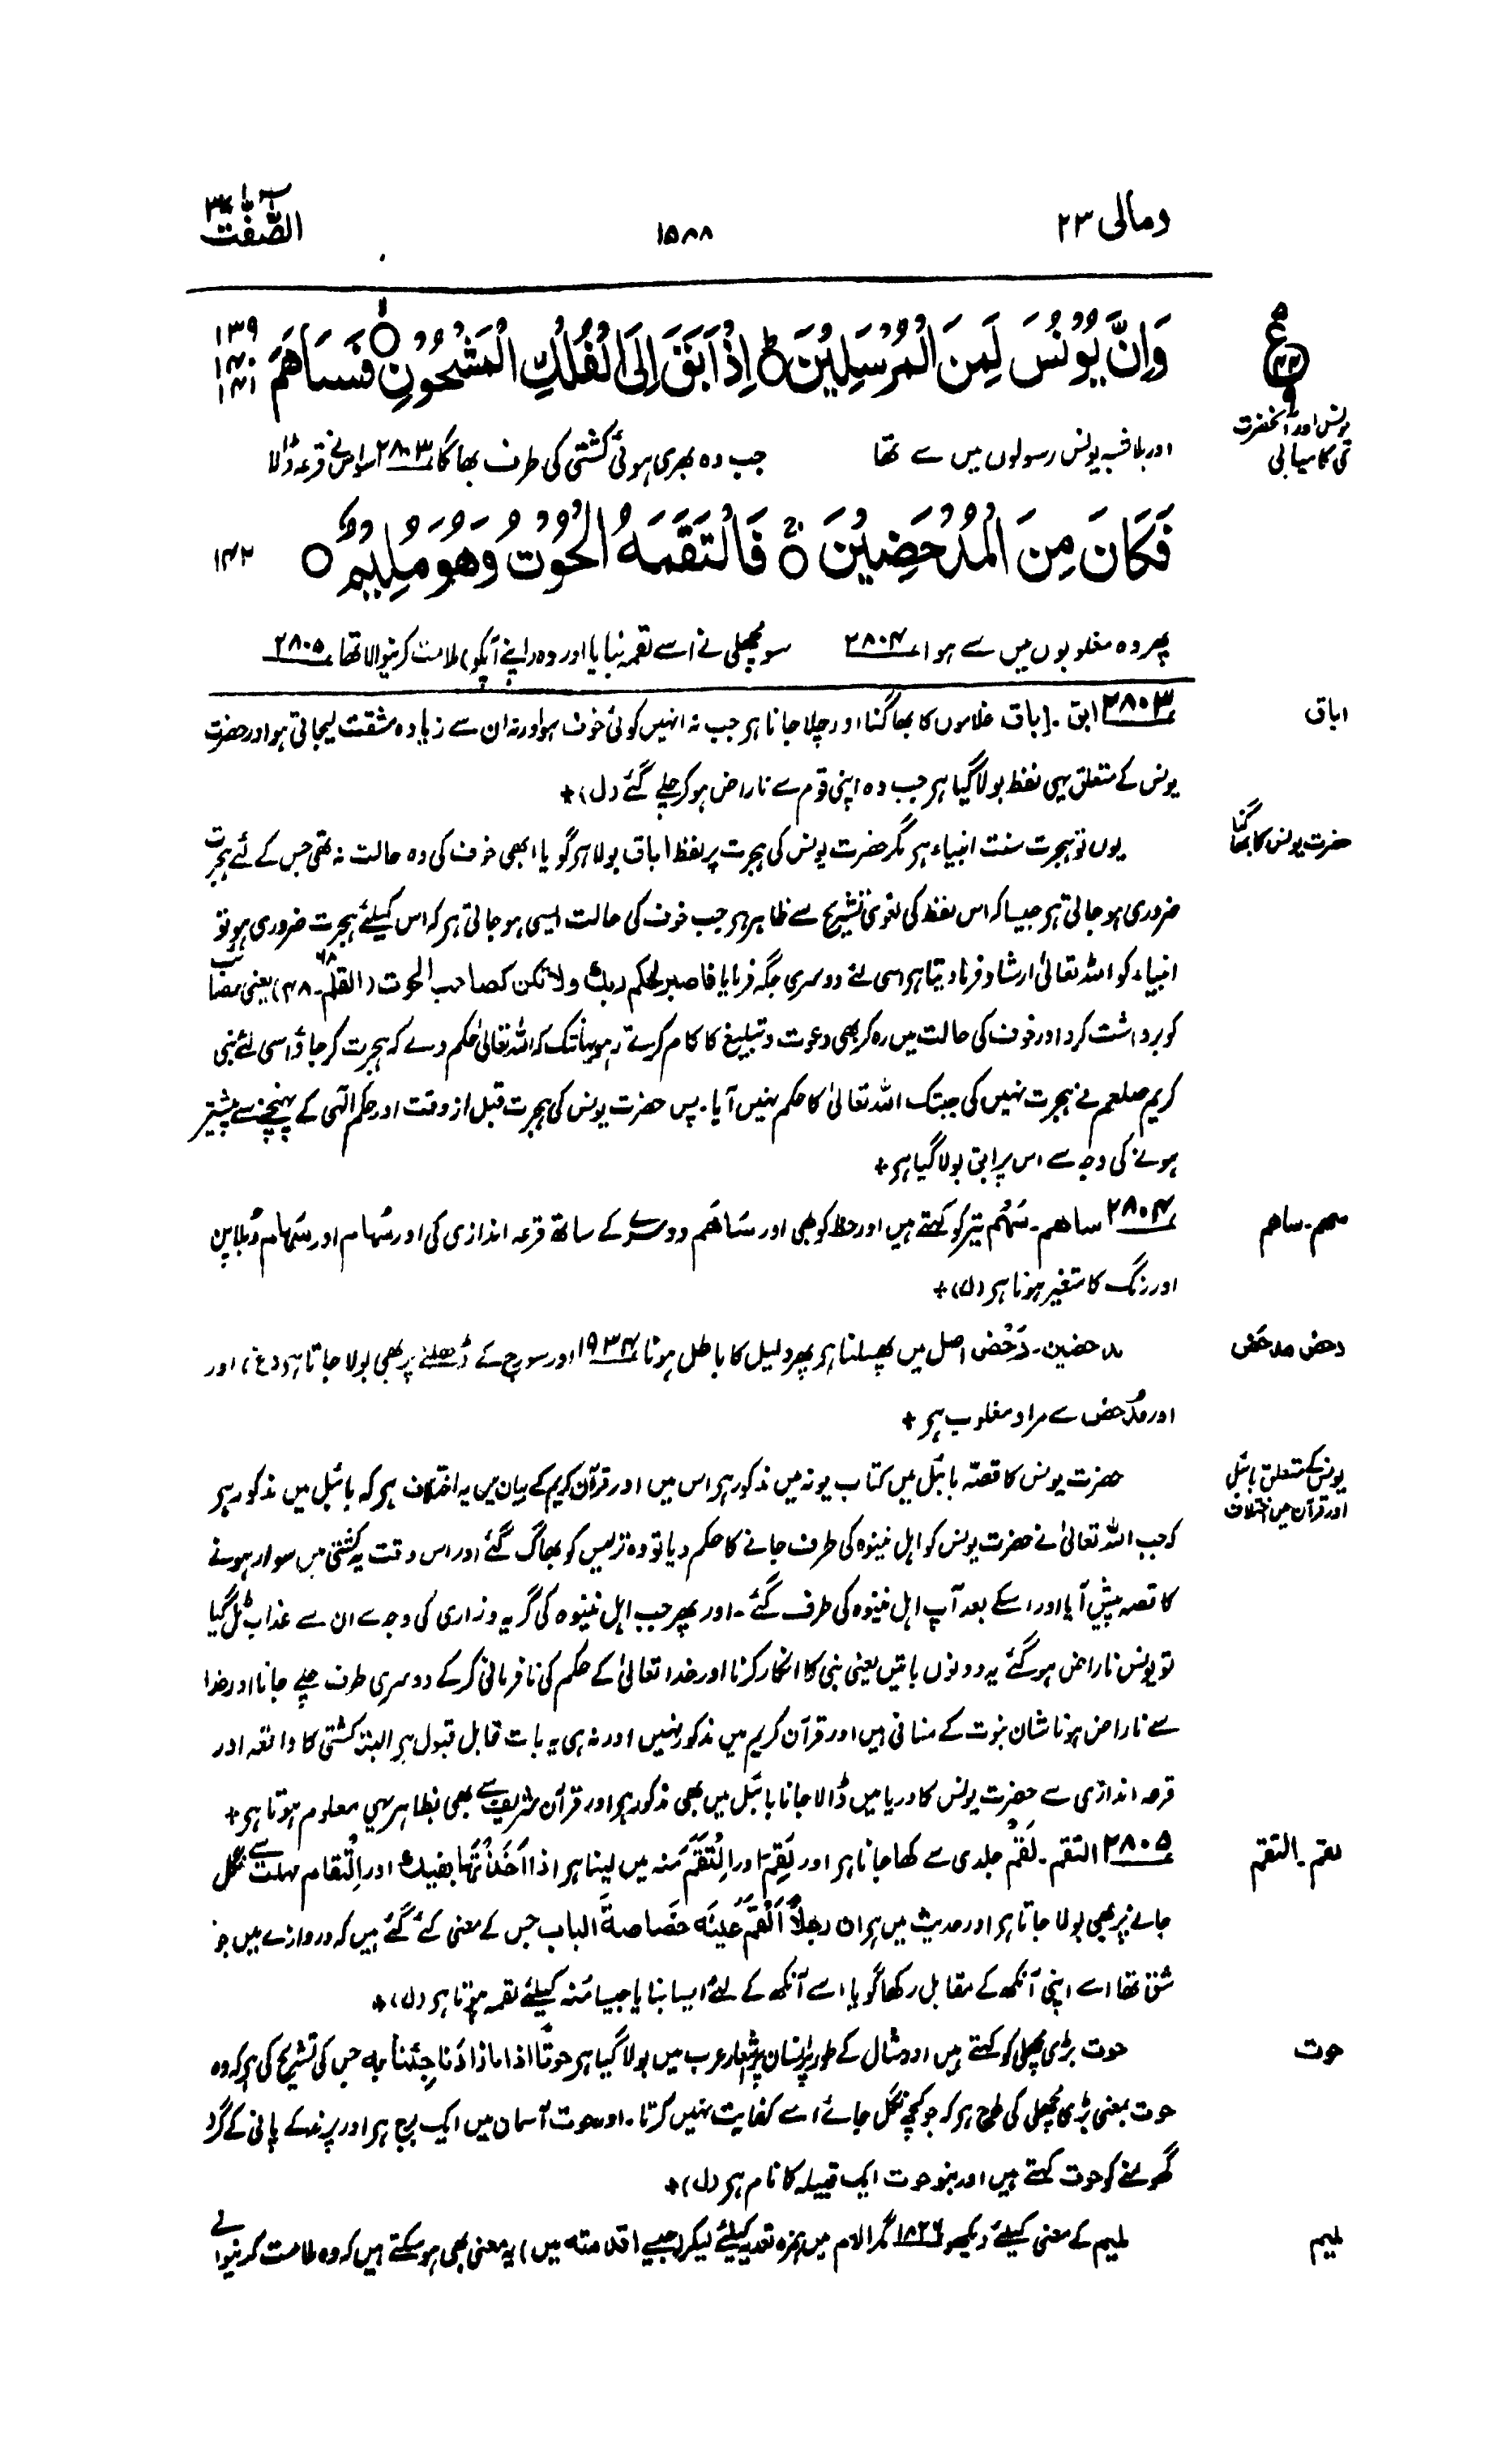 ومالی ۲۳
۱۵۸۸
الصّٰفّٰت ۳۷
وَاِنَّ یُوْنُسَ لَمِنَ الْمُرْسَلِیْنَ ۞ اِذْ اَبَقَ اِلَی الْفُلْكِ الْمَشْحُوْنِ ۞ فَسَاهَمَ
۱۳۹
۱۴۰
۱۴۱
ع
یونس اور آنحضرت
کی کامیابی
اور بلاشبہ یونس رسولوں میں سے تھا جب وہ بھری ہوئی کشتی کی طرف بھاگا ۲۸۰۳ سو اس نے قرعہ ڈالا
فَكَانَ مِنَ الْمُدْحَضِیْنَ ۞ فَالْتَقَمَهُ الْحُوْتُ وَهُوَ مُلِیْمٌ ۞
۱۴۲
پھر وہ مغلوبوں میں سے ہوا ۲۸۰۴ سو مچھلی نے اسے لقمہ بنایا اور وہ (اپنے آپکو) ملامت کرنیوالا تھا ۲۸۰۵
اباق
۲۸۰۳ ابق۔ اِباق غلاموں کا بھاگنا اور چلا جانا ہر جب نہ انہیں کوئی خوف ہو اور نہ ان سے زیادہ مشقت لیجاتی ہو اور حضرت
یونس کے متعلق یہی لفظ بولا گیا ہر جب وہ اپنی قوم سے ناراض ہو کر چلے گئے (ل) +
حضرت یونس کا بھاگنا
یوں تو ہجرت سنت انبیاء ہر مگر حضرت یونس کی ہجرت پر لفظ اباق بولا ہر گویا ابھی خوف کی وہ حالت نہ تھی جس کے لئے ہجرت
ضروری ہو جاتی ہر جیسا کہ اس لفظ کی لغوی تشریح سے ظاہر ہر جب خوف کی حالت ایسی ہو جاتی ہر کہ اس کیلئے ہجرت ضروری ہو تو
انبیاء کو اللہ تعالیٰ ارشاد فرما دیتا ہر اسی لئے دوسری جگہ فرمایا فاصبر لحکم ربك ولا تکن کصاحب الحوت (القلم ۶۸۔۴۸) یعنی مصائب
کو برداشت کرو اور خوف کی حالت میں رہ کر بھی دعوت و تبلیغ کا کام کرتے رہو یہانتک کہ اللہ تعالیٰ حکم دے کہ ہجرت کر جاؤ اسی لئے نبی
کریم صلعم نے ہجرت نہیں کی جبتک اللہ تعالیٰ کا حکم نہیں آیا۔ پس حضرت یونس کی ہجرت قبل از وقت اور حکم الٰہی کے پہنچنے سے پیشتر
ہونے کی وجہ سے اس پر ابق بولا گیا ہر +
سہم۔ساھم
۲۸۰۴ ساھم۔ سَهْم تیر کو کہتے ہیں اور حظ کو بھی اور سَاهَمَ دوسرے کے ساتھ قرعہ اندازی کی اور سُہام اور سَہام دُبلا پن
اور رنگ کا متغیر ہونا ہر (ل) +
دحض مدحَض
مدحضین۔ دَحْض اصل میں پھسلنا ہر پھر دلیل کا باطل ہونا ۱۹۳۴ اور سورج کے ڈھلنے پر بھی بولا جاتا ہر (غ) اور
اور مُدحَض سے مراد مغلوب ہر +
یونس کے متعلق بائبل
اور قرآن میں اختلاف
حضرت یونس کا قصّہ بائبل میں کتاب یونہ میں مذکور ہر اس میں اور قرآن کریم کے بیان میں یہ اختلاف ہر کہ بائبل میں مذکور ہر
کہ جب اللہ تعالیٰ نے حضرت یونس کو اہل نینوہ کی طرف جانے کا حکم دیا تو وہ ترسیس کو بھاگ گئے اور اس وقت یہ کشتی میں سوار ہونے
کا قصہ پیش آیا اور اسکے بعد آپ اہل نینوہ کی طرف گئے۔ اور پھر جب اہل نینوہ کی گریہ وزاری کی وجہ سے ان سے عذاب ٹل گیا
تو یونس ناراض ہو گئے یہ دونوں باتیں یعنی نبی کا انکار کرنا اور خدا تعالیٰ کے حکم کی نافرمانی کر کے دوسری طرف چلے جانا اور خدا
سے ناراض ہونا شان نبوت کے منافی ہیں اور قرآن کریم میں مذکور نہیں اور نہ ہی یہ بات قابل قبول ہر البتہ کشتی کا واقعہ اور
قرعہ اندازی سے حضرت یونس کا دریا میں ڈالا جانا بائبل میں بھی مذکور ہر اور قرآن شریف سے بھی بظاہر یہی معلوم ہوتا ہر +
لقم۔التقم
۲۸۰۵ التقم۔ لَقْم جلدی سے کھا جانا ہر اور لَقِمَ اور اِلْتَقَمَ مُنہ میں لینا ہر اذا اَخَذْتَها بفیك اور اِلْتقام مہلت سے نگل
جانے پر بھی بولا جاتا ہر اور حدیث میں ہر ان رجلًا اَلْقَمَ عَیْنَه خَصَاصةَ الباب جس کے معنی کئے گئے ہیں کہ دروازے میں جو
شق تھا اسے اپنی آنکھ کے مقابل رکھا گویا اسے آنکھ کے لئے ایسا بنایا جیسا مُنہ کیلئے لقمہ ہوتا ہر (ل) +
حوت
حوت بڑی مچھلی کو کہتے ہیں اور مثال کے طور پر انسان پر اشعار عرب میں بولا گیا ہر حوتًا اذا مازادُنا جِئْنا به جس کی تشریح کی ہر کہ وہ
حوت بمعنی بڑی مچھلی کی طرح ہر کہ جو کچھ نگل جائے اسے کفایت نہیں کرتا۔ اور حوت آسمان میں ایک برج ہر اور پرندے کے پانی کے گرد
گھومنے کو حوت کہتے ہیں اور بنو حوت ایک قبیلہ کا نام ہر (ل) +
ملیم
ملیم کے معنی کیلئے دیکھو ۱۸۲۶ مگر الام میں ہمزہ تعدیہ کیلئے لیکر (جیسے اقدمتہ میں) یہ معنی بھی ہو سکتے ہیں کہ وہ ملامت کرنیوالے